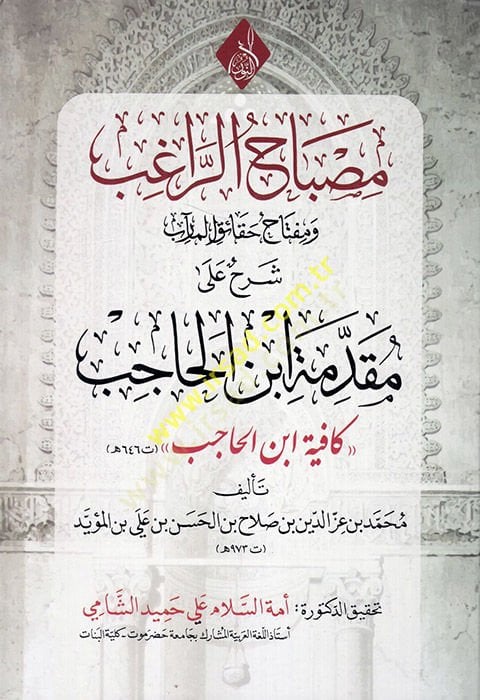 مِصْبَاحُ الرَّاغِبِ
وَمِفْتَاحُ حَقَائِقِ المَآرِبِ
شَرْحٌ عَلَى
مُقَدِّمَةِ ابْنِ الحَاجِبِ
«كافية ابن الحاجب» (ت٦٤٦هـ)
تَأليف
مُحَمَّد بن عِزّ الدِّين بن صَلاح بن الحَسَن بن عَلي بن المُؤَيَّد
(ت ٩٧٣هـ)
تحقيق الدكتورة: أمة السَّلام علي حميد الشَّامي
أستاذ اللغة العربية المشارك بجامعة حضرموت - كلية البنات